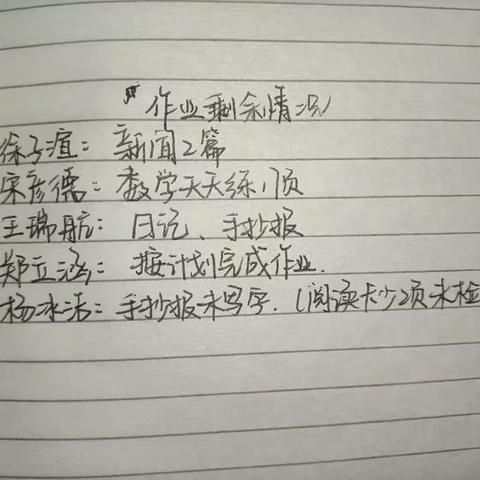 作业剩余情况
徐子渲：新闻2篇
宋彦德：数学天天练1页
王瑞航：日记、手抄报
郑立涵：按计划完成作业.
杨冰洁：手抄报未写字.（阅读卡少2页未检